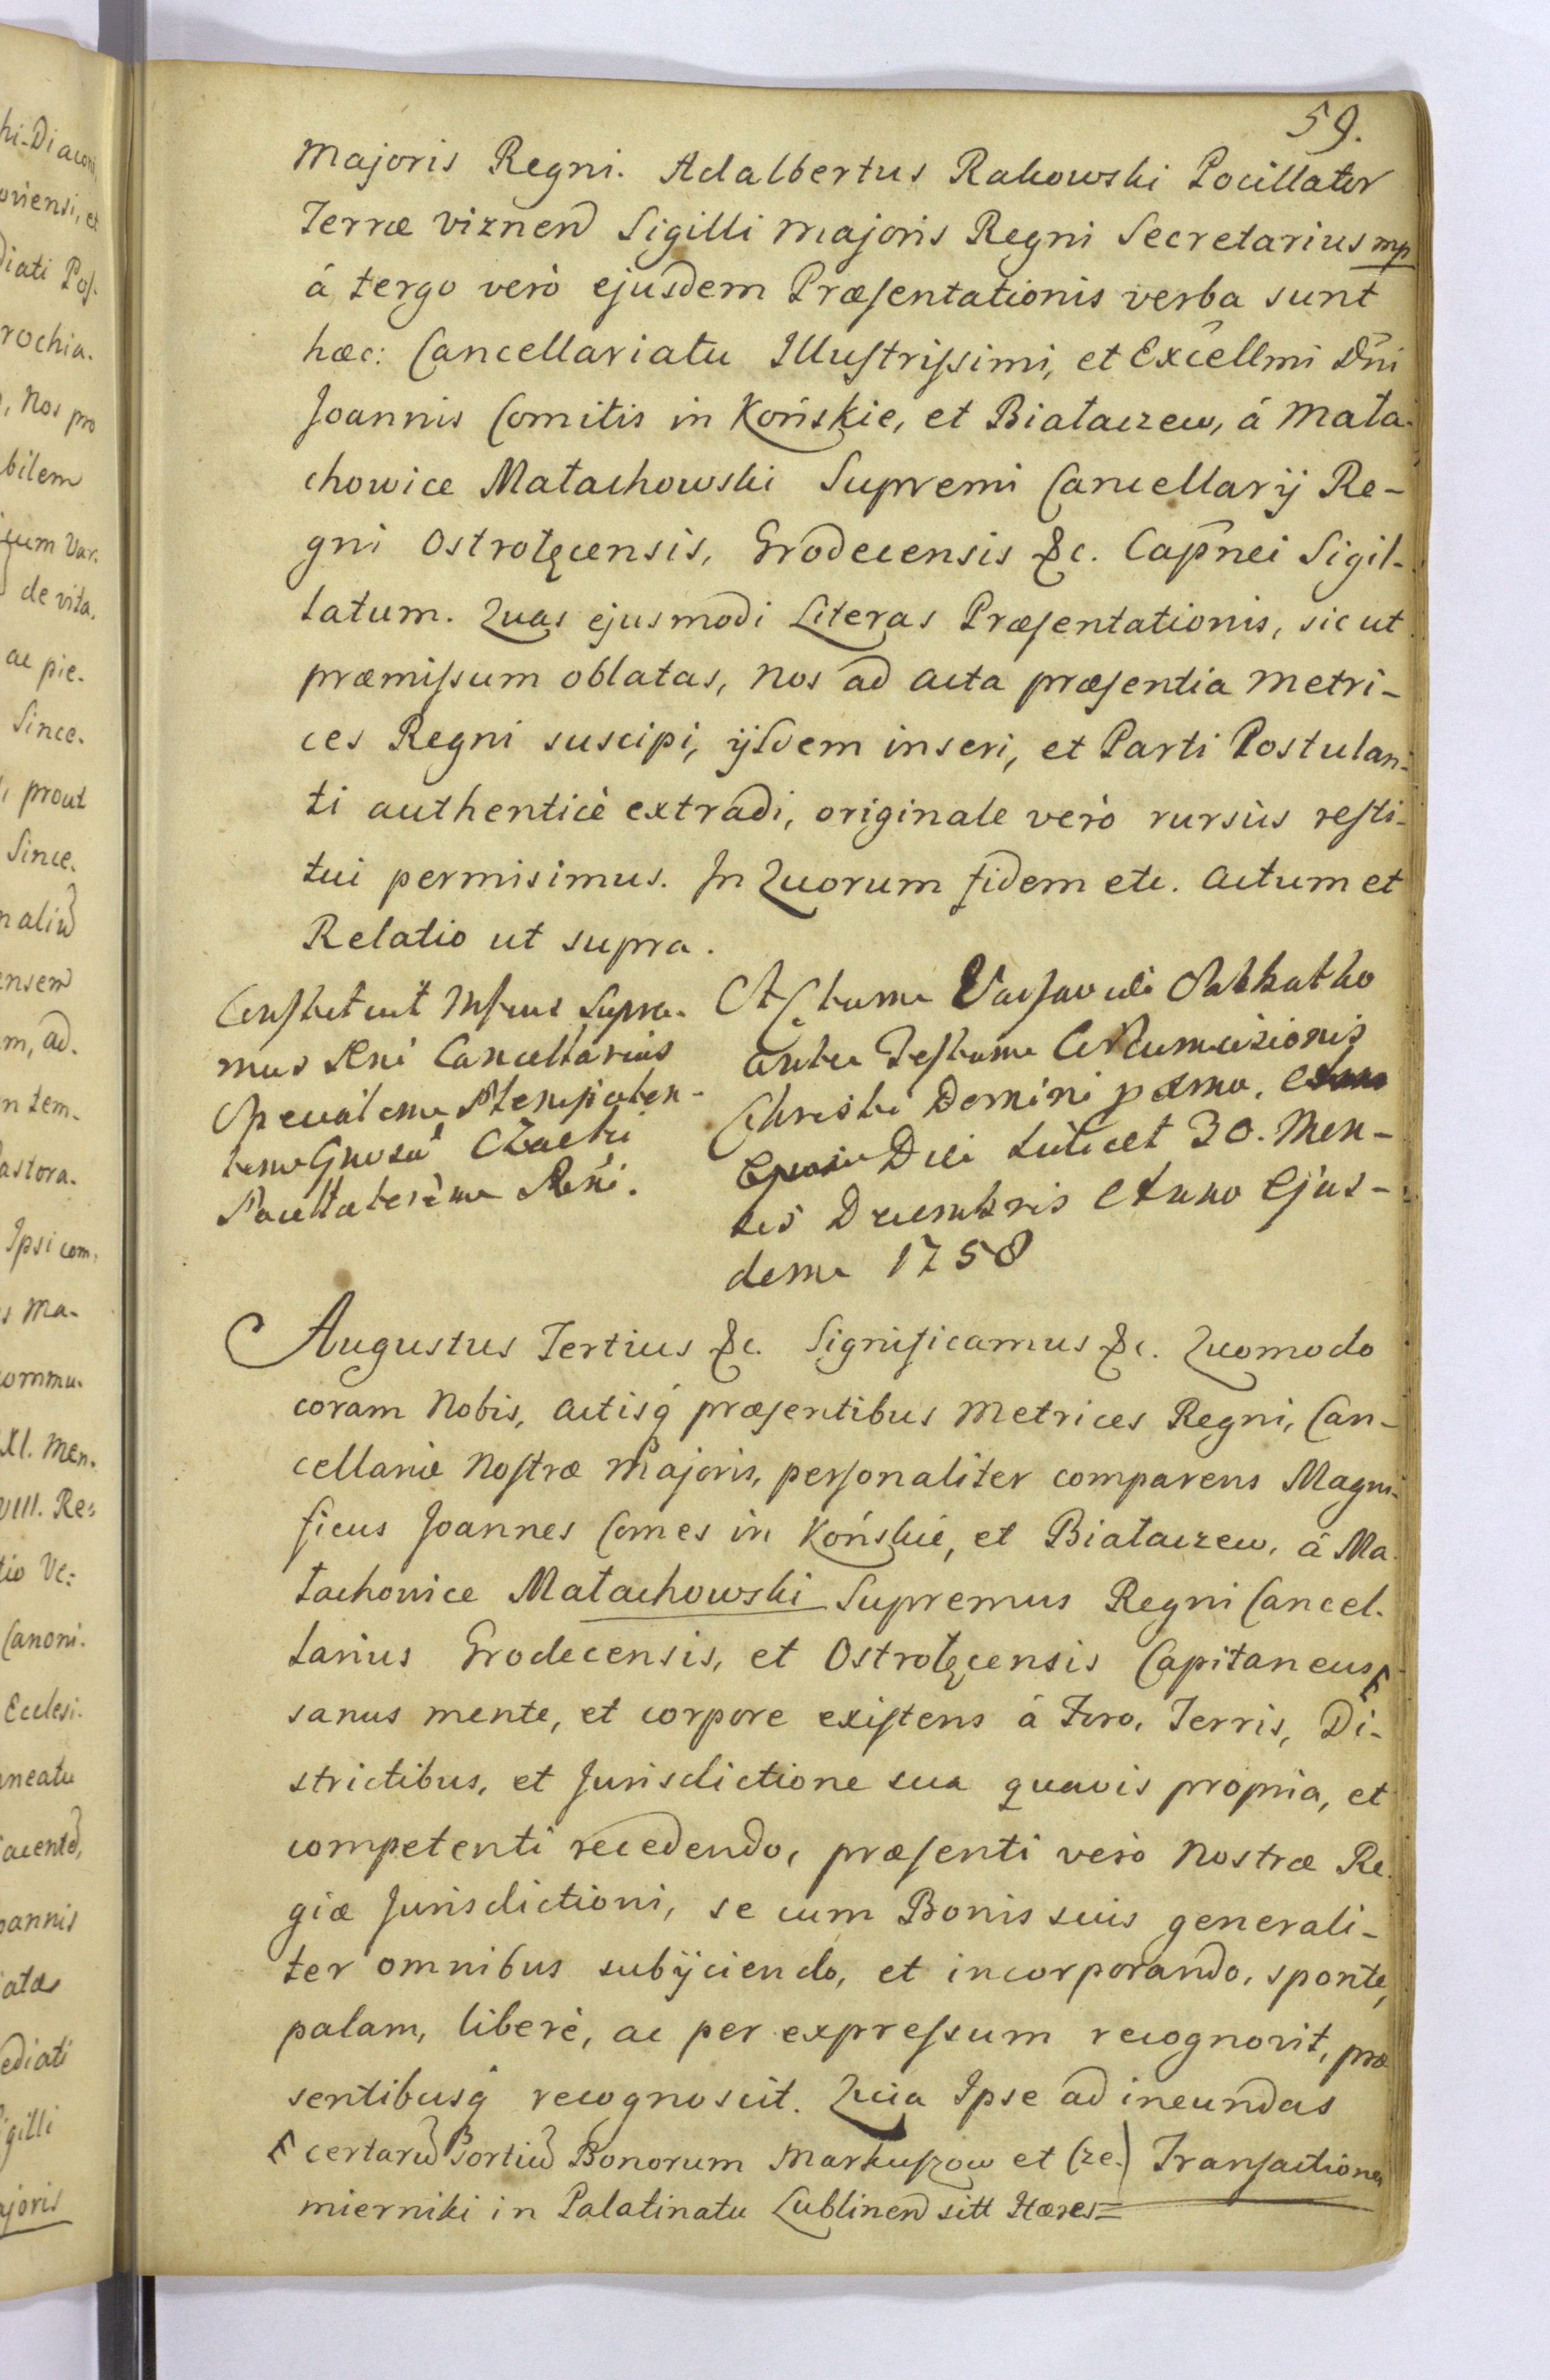 59.
Majoris Regni. Adalbertus Rakowski Pocillator
Terræ Viznen Sigilli Majoris Regni Secretarius mp
á tergo verò ejusdem Præsentationis verba sunt
hæc: Cancellariatu Illustrissimi, et Excellmi Dni
Joannis Comitis in Końskie, et Białaczew, á Mała-
chowice Małachowski Supremi Cancellarij Re-
gni Ostrołęcensis, Grodecensis &c. Capnei Sigil-
latum. Quas ejusmodi Literas Præsentationis, sic ut
præmissum oblatas, Nos ad acta præsentia Metri-
ces Regni suscipi, ijsdem inseri, et Parti Postulan-
ti authenticè extradi, originale verò rursùs resti-
tui permisimus. In Quorum fidem etc. Actum et
Relatio ut supra.
Constituit Supre-
mus Rni Cancellarius
Specialem Plenipoten-
tem Gnosū Czacki
Rni.
Actum Varsaviæ Sabbatho
ante Festum Circumcisionis
Christi Domini pxmo,
Die scilicet 30. Men-
sis Decembris Anno Ejus-
dem 1758
Augustus Tertius &c. Significamus &c. Quomodo
coram Nobis, Actisq præsentibus Metrices Regni, Can-
cellariæ Nostræ Majoris, personaliter comparens Magni-
ficus Joannes Comes in Końskie, et Białaczew, á Ma-
łachowice Małachowski Supremus Regni Cancel-
larius Grodecensis, et Ostrołęcensis Capitaneus
sanus mente, et corpore existens á Foro, Terris, Di-
strictibus, et Jurisdictione sua quavis propria, et
competenti recedendo, præsenti verò Nostræ Re-
giæ Jurisdictioni, se cum Bonis suis generali-
ter omnibus subijciendo, et incorporando, sponte,
palam, liberè, ac per expressum recognovit, præ
sentibusq recognoscit. Quia Ipse ad ineundas
certarū Portiū Bonorum Markuszow et Cze-) Transactiones
mierniki in Palatinatu Lublinen sitt Hæres=